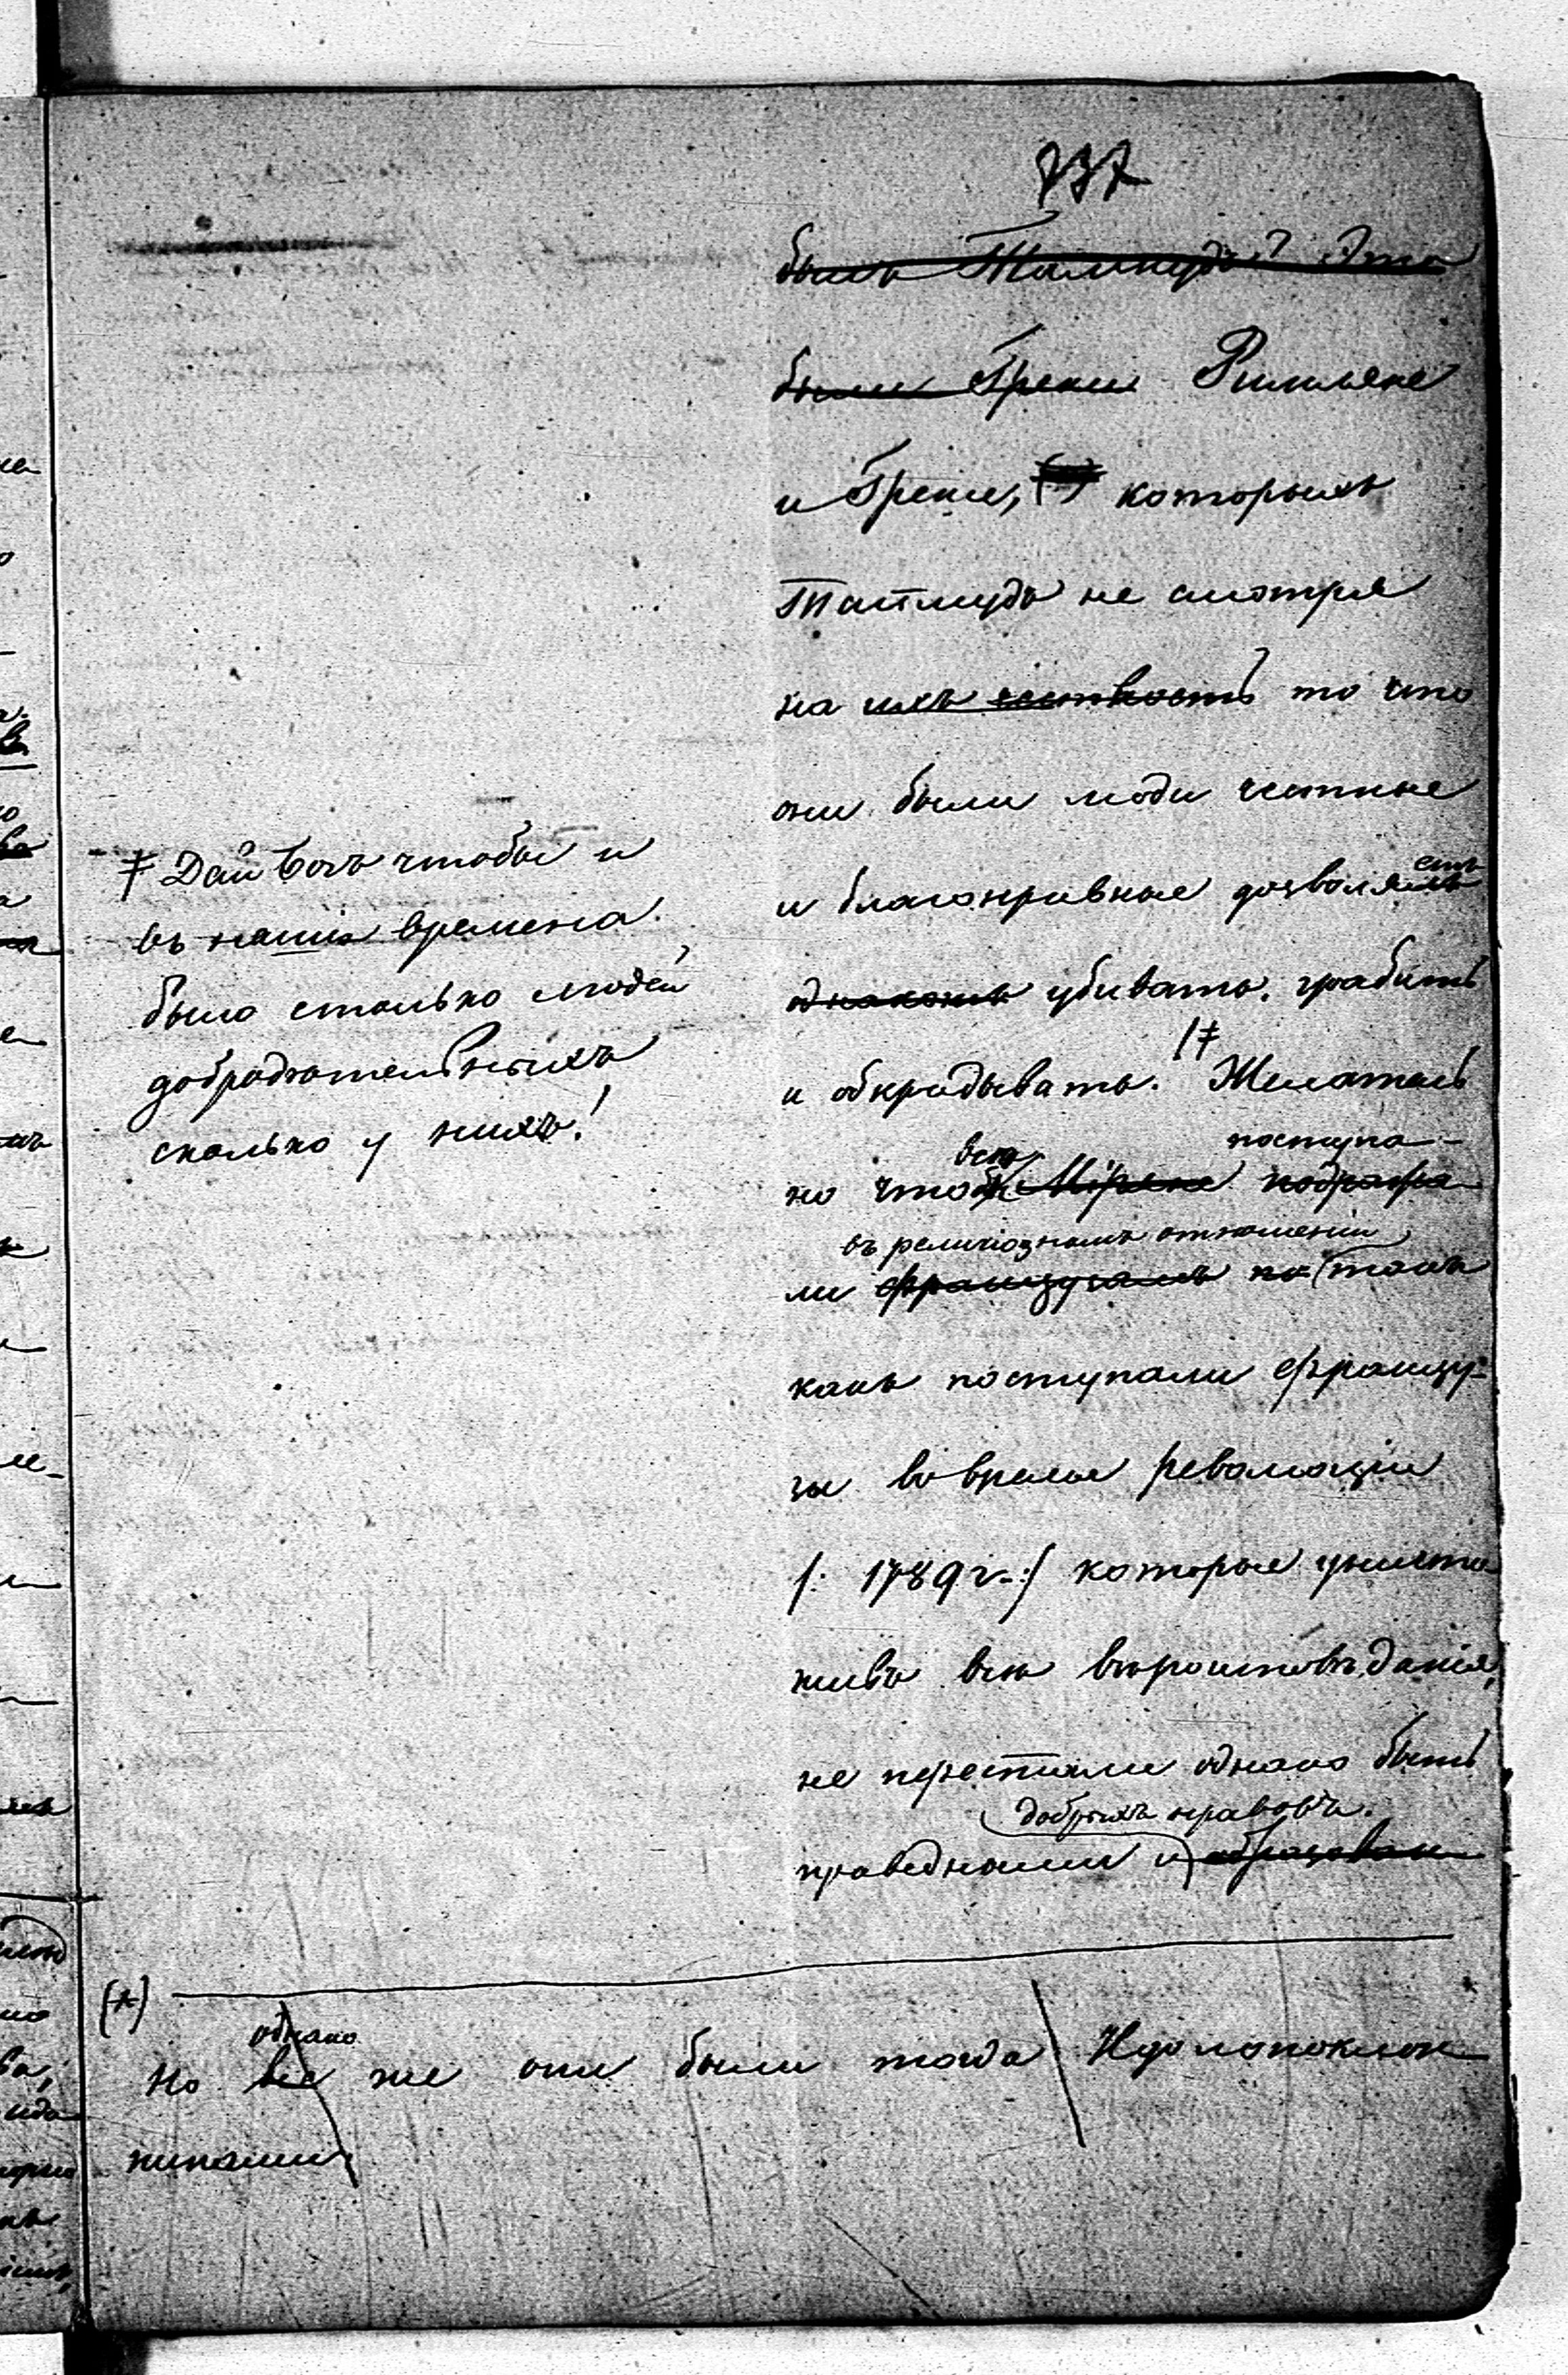 737
былъ Талмудъ? Это
были Греки Римляне
и Греки, (*) которыхъ
Талмудъ не смотря
на ихъ честность то что
они были люди честные
и благонравные дозволяетъ
однакожъ убивать, грабить
и обкрадывать. /≠ Желатель
но чтобы все поступа-
въ религіозномъ отношеніи
ли французамъ по такъ
какъ поступали францу-
зы во время революціи
/: 1789 г. :/ которые уничто
живъ всѣ вѣроисповѣданія,
не перестали однако быть
добрыхъ нравовъ.
праведными и образован
≠ Дай Богъ чтобы и
въ наши времена
было столько людей
добродѣтельныхъ
сколько у нихъ!
(*)
однако
но все же они были тогда Идолопоклон
никами